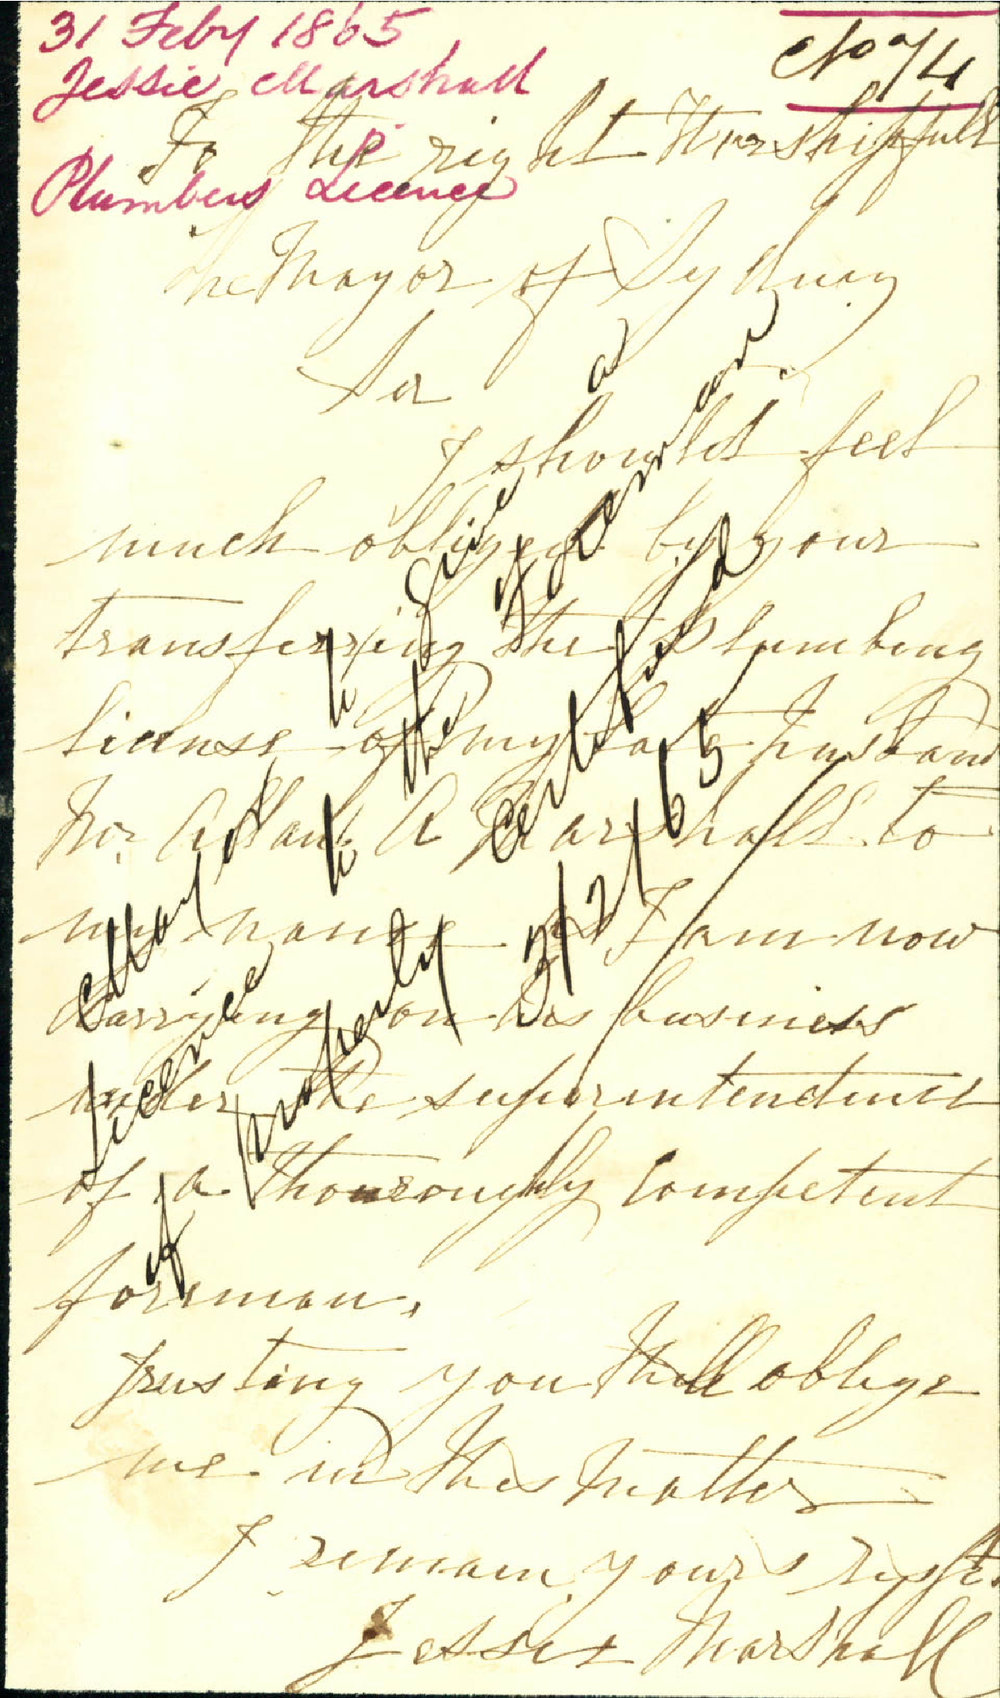 31 Feby 1865
Jessie Marshall
Plumbers Licence
No 74
To the right Worshipfull
the Mayor of Sydney
Sir
I should feel
much obliged by your
transferring the Plumbing
license of my late Husband
Mr. Adam A Marshall to
my name as I am now
carrying on his business
under the superintendence
of a thouroughly competent
foreman.
Trusting you will oblige
me in this matter
I remain yours respt.
Jessie Marshall
Mayor to give a
Licence to the foreman
if properly certified
3/2/65